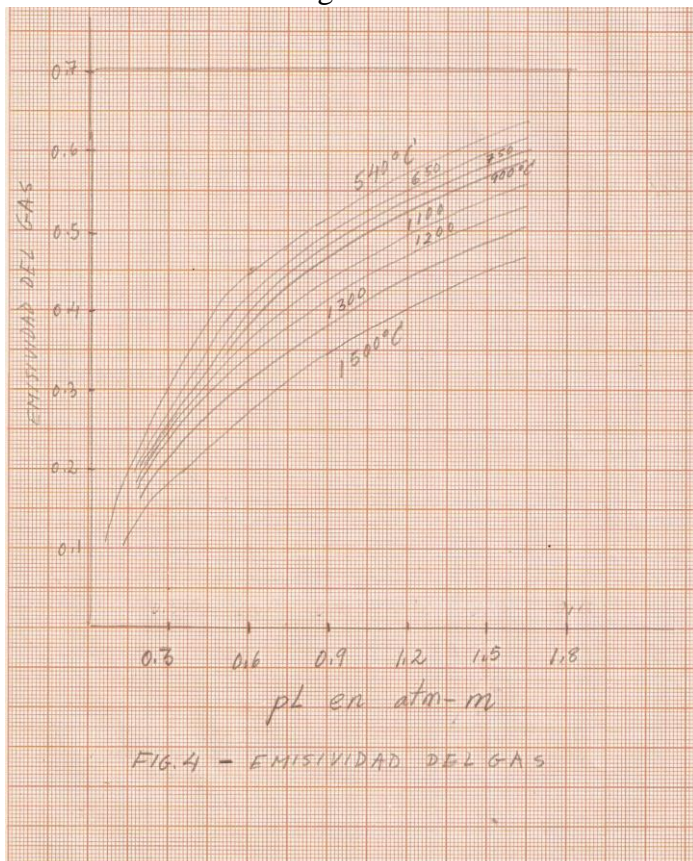 0.7
0.6
0.5
0.4
0.3
0.2
0.1
EMISIVIDAD DEL GAS
540°C
650
750
900°C
1100
1200
1300
1500°C
0.3 0.6 0.9 1.2 1.5 1.8
pL en atm-m
FIG. 4 - EMISIVIDAD DEL GAS